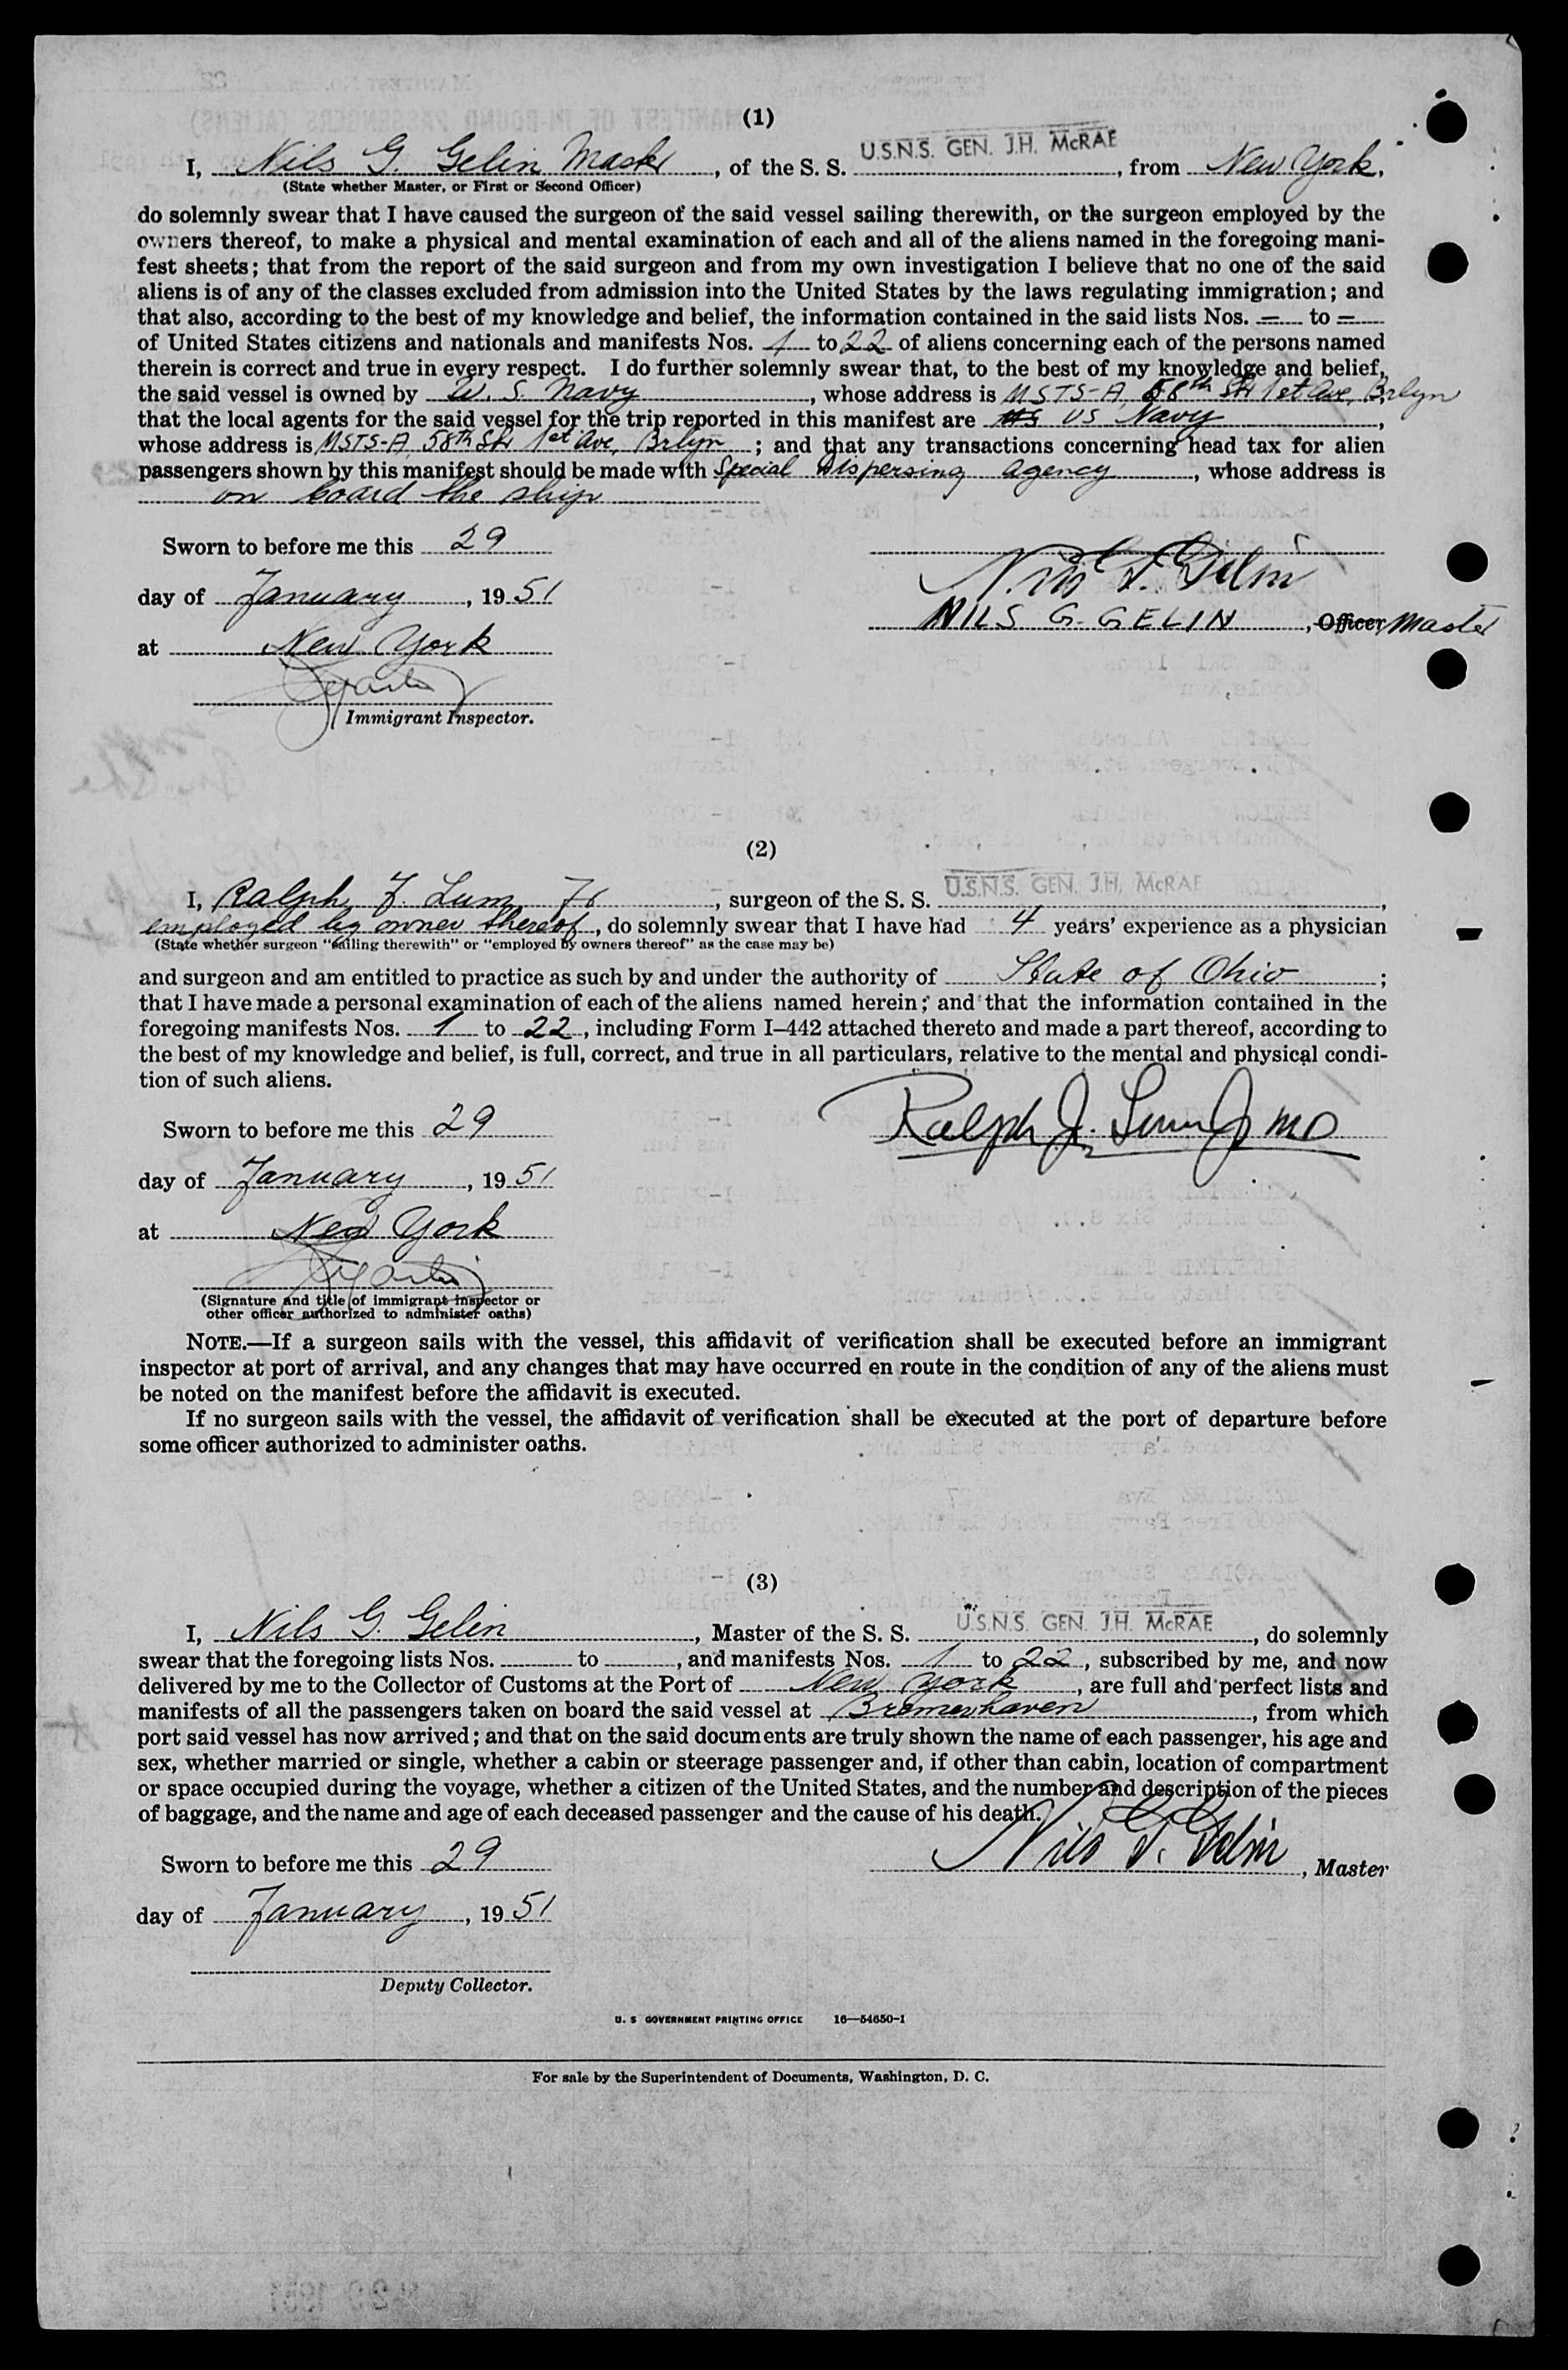 (1)
I, Nils G. Gelin Master, of the S. S. U.S.N.S. GEN. J.H. McRAE, from New York,
(State whether Master, or First or Second Officer)
do solemnly swear that I have caused the surgeon of the said vessel sailing therewith, or the surgeon employed by the
owners thereof, to make a physical and mental examination of each and all of the aliens named in the foregoing mani-
fest sheets; that from the report of the said surgeon and from my own investigation I believe that no one of the said
aliens is of any of the classes excluded from admission into the United States by the laws regulating immigration; and
that also, according to the best of my knowledge and belief, the information contained in the said lists Nos. = to =
of United States citizens and nationals and manifests Nos. 1 to 22 of aliens concerning each of the persons named
therein is correct and true in every respect. I do further solemnly swear that, to the best of my knowledge and belief,
the said vessel is owned by U. S. Navy, whose address is MSTS-A 58th St 1st Ave, Brlyn
that the local agents for the said vessel for the trip reported in this manifest are US Navy,
whose address is MSTS-A 58th St 1st Ave, Brlyn; and that any transactions concerning head tax for alien
passengers shown by this manifest should be made with Special Dispersing Agency, whose address is
on board the ship
Sworn to before me this 29
day of January, 1951
Nils G. Gelin
NILS G. GELIN, Officer Master
at New York
Immigrant Inspector.
(2)
I, Ralph J. Lum Jr, surgeon of the S. S. U.S.N.S. GEN. J.H. McRAE,
employed by owner thereof, do solemnly swear that I have had 4 years' experience as a physician
(State whether surgeon "sailing therewith" or "employed by owners thereof" as the case may be)
and surgeon and am entitled to practice as such by and under the authority of State of Ohio;
that I have made a personal examination of each of the aliens named herein; and that the information contained in the
foregoing manifests Nos. 1 to 22, including Form I–442 attached thereto and made a part thereof, according to
the best of my knowledge and belief, is full, correct, and true in all particulars, relative to the mental and physical condi-
tion of such aliens.
Sworn to before me this 29
Ralph J. Lum Jr MD
day of January, 1951
at New York
(Signature and title of immigrant inspector or
other officer authorized to administer oaths)
NOTE.—If a surgeon sails with the vessel, this affidavit of verification shall be executed before an immigrant
inspector at port of arrival, and any changes that may have occurred en route in the condition of any of the aliens must
be noted on the manifest before the affidavit is executed.
If no surgeon sails with the vessel, the affidavit of verification shall be executed at the port of departure before
some officer authorized to administer oaths.
(3)
I, Nils G. Gelin, Master of the S. S. U.S.N.S. GEN. J.H. McRAE, do solemnly
swear that the foregoing lists Nos. to , and manifests Nos. 1 to 22, subscribed by me, and now
delivered by me to the Collector of Customs at the Port of New York, are full and perfect lists and
manifests of all the passengers taken on board the said vessel at Bremerhaven, from which
port said vessel has now arrived; and that on the said documents are truly shown the name of each passenger, his age and
sex, whether married or single, whether a cabin or steerage passenger and, if other than cabin, location of compartment
or space occupied during the voyage, whether a citizen of the United States, and the number and description of the pieces
of baggage, and the name and age of each deceased passenger and the cause of his death.
Sworn to before me this 29
Nils G. Gelin, Master
day of January, 1951
Deputy Collector.
U. S GOVERNMENT PRINTING OFFICE 16—54650-1
For sale by the Superintendent of Documents, Washington, D. C.